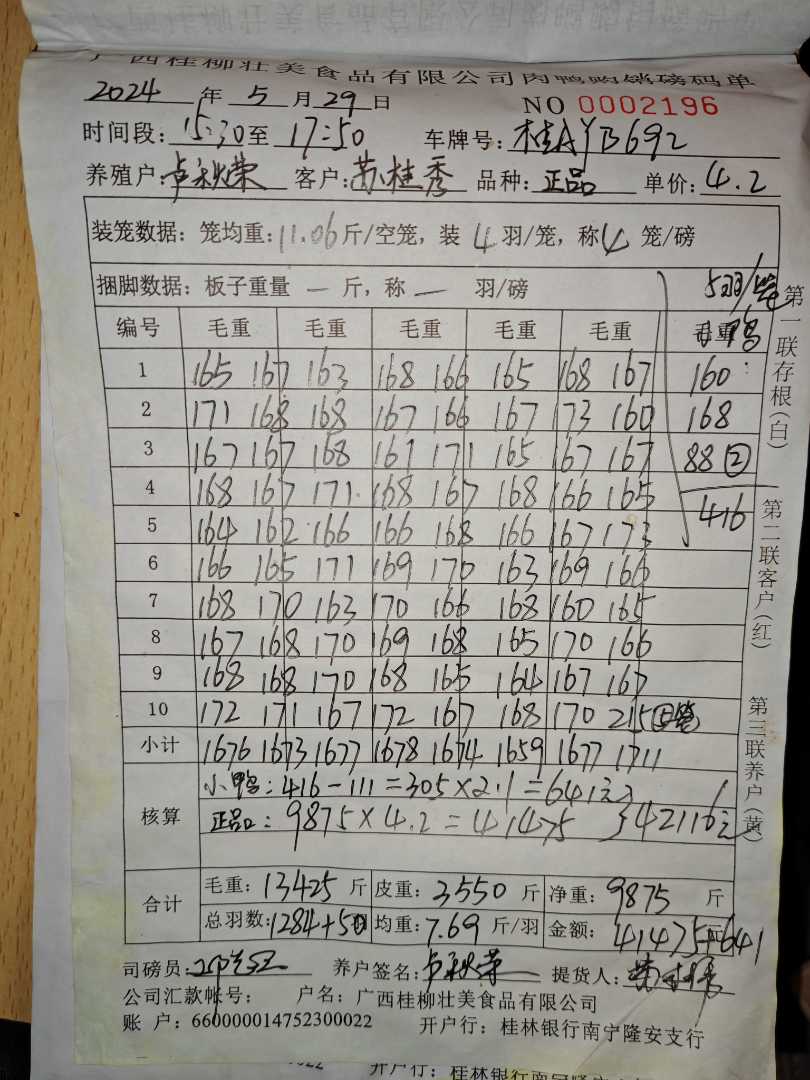 广西桂柳壮美食品有限公司肉鸭购销磅码单
2024 年 5 月 29 日 NO 0002196
时间段: 15:30 至 17:50 车牌号: 桂AYB692
养殖户: 卢秋荣 客户: 苏桂秀 品种: 正品 单价: 4.2
装笼数据: 笼均重: 11.06 斤/空笼, 装 4 羽/笼, 称 4 笼/磅
捆脚数据: 板子重量 — 斤, 称 — 羽/磅 5羽/笼
编号 毛重 毛重 毛重 毛重 毛重 毛重 小鸭
1 165 167 163 168 166 165 168 167 160
2 171 168 168 167 166 167 173 160 168
3 167 167 168 167 171 165 167 167 88 ②
4 168 167 171 168 167 168 166 165 416
5 164 162 166 166 168 166 167 173
6 166 165 171 169 170 163 169 166
7 168 170 163 170 166 168 160 165
8 167 168 170 169 168 165 170 166
9 168 168 170 168 165 164 167 167
10 172 171 167 172 167 168 170 215 ⑤笼
小计 1676 1673 1677 1678 1674 1659 1677 1711
核算 小鸭: 416-111=305×2.1=641元
正品: 9875×4.2=41475 42116元
合计 毛重: 13425 斤 皮重: 3550 斤 净重: 9875 斤
总羽数: 1284+50 均重: 7.69 斤/羽 金额: 41475+641 元
司磅员: 养户签名: 卢秋荣 提货人:
公司汇款帐号: 户名: 广西桂柳壮美食品有限公司
账 户: 660000014752300022 开户行: 桂林银行南宁隆安支行
第一联存根(白) 第二联客户(红) 第三联养户(黄)